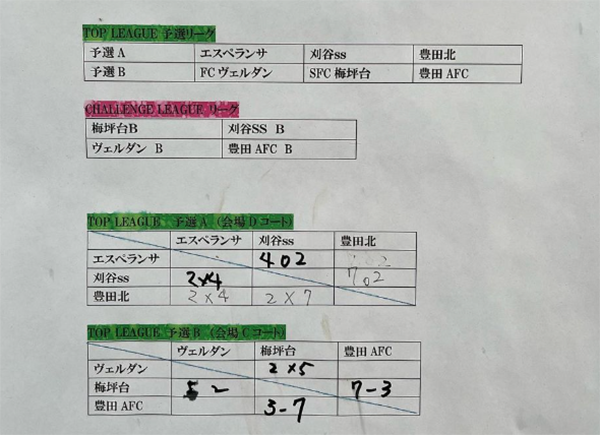 TOP LEAGUE 予選リーグ
予選 A エスペランサ 刈谷ss 豊田北
予選 B FC ヴェルダン SFC 梅坪台 豊田 AFC
CHALLENGE LEAGUE リーグ
梅坪台B 刈谷SS B
ヴェルダン B 豊田 AFC B
TOP LEAGUE 予選 A (会場 D コート)
エスペランサ 刈谷ss 豊田北
エスペランサ 4 0 2
刈谷ss 2×4 7 0 2
豊田北 2×4 2×7
TOP LEAGUE 予選 B (会場 C コート)
ヴェルダン 梅坪台 豊田 AFC
ヴェルダン 2×5
梅坪台 5 2 7-3
豊田 AFC 3-7